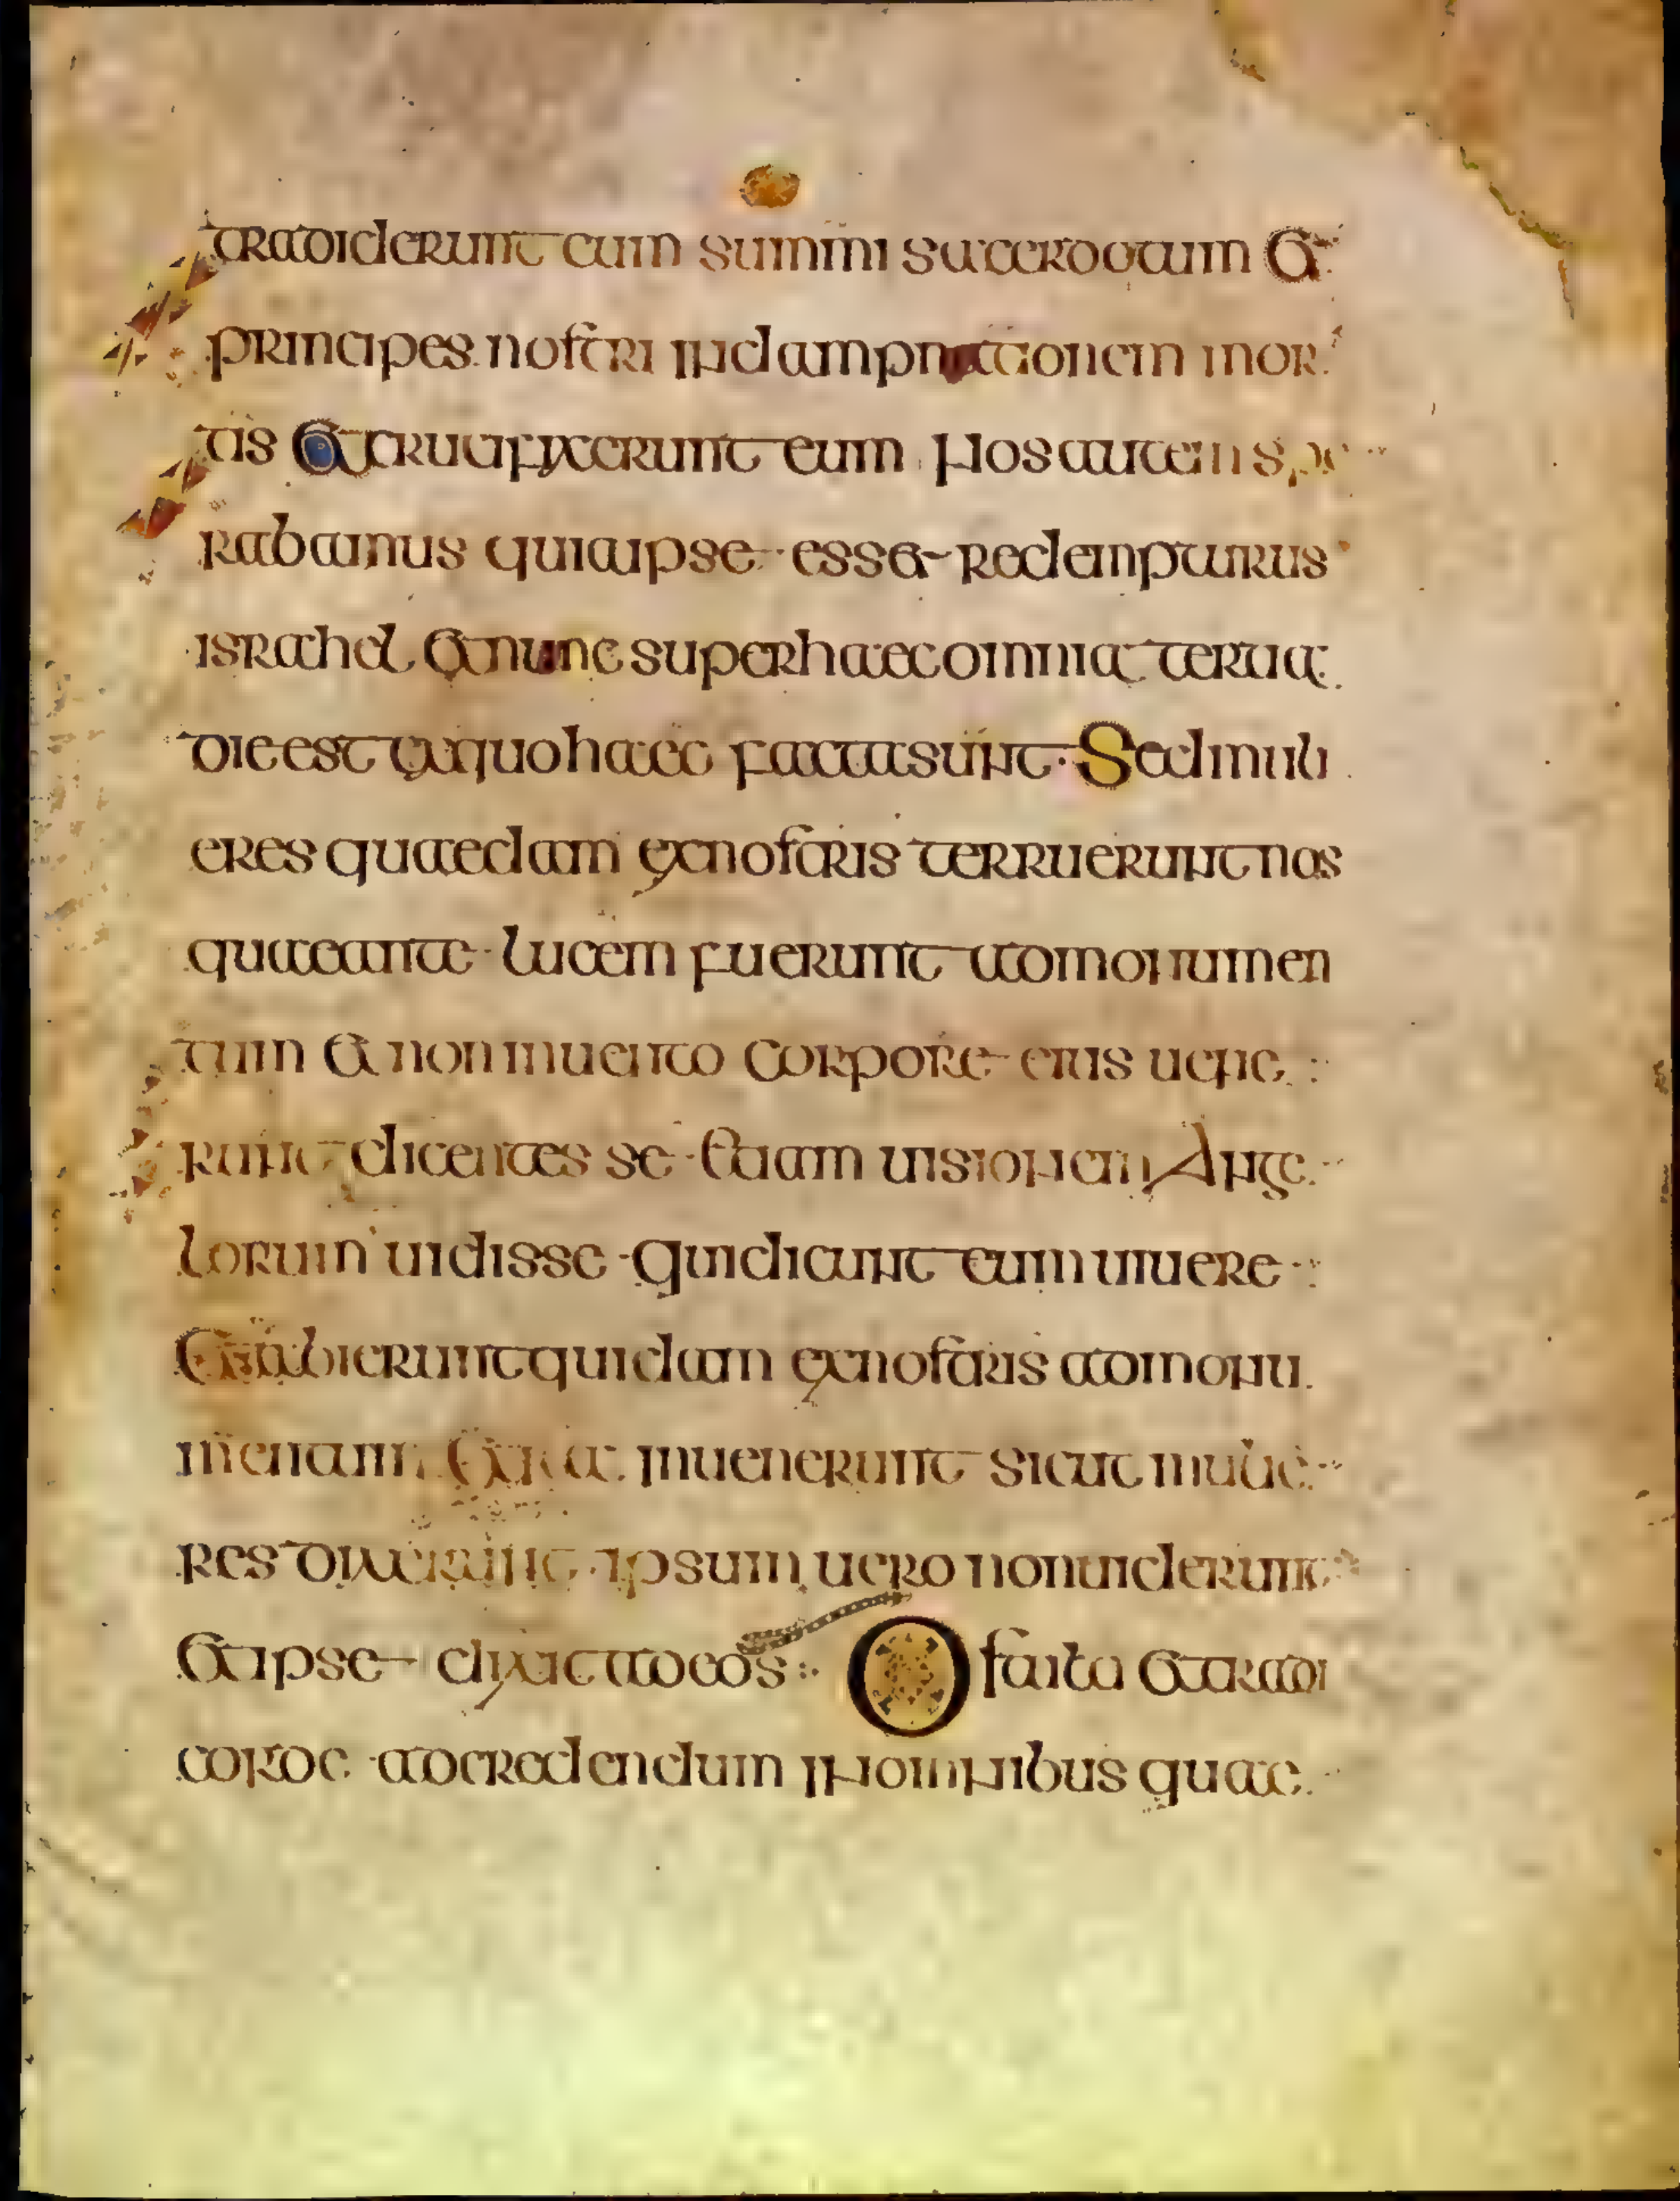 tradiderunt eum summi sacerdotum et
principes nostri in dampnationem mor
tis et crucifixerunt eum nos autem spe
rabamus quia ipse esset redempturus
israhel et nunc super haec omnia tertia
die est a quo haec facta sunt Sed muli
eres quaedam ex nostris terruerunt nos
quae ante lucem fuerunt ad monumen
tum et non inuento corpore eius uene
runt dicentes se etiam uisionem Ange
lorum uidisse qui dicunt eum uiuere
Et abierunt quidam ex nostris ad monu
mentum et ita inuenerunt sicut mulie
res dixerunt ipsum uero non uiderunt
et ipse dixit ad eos O stulti et tardi
corde ad credendum in omnibus quae